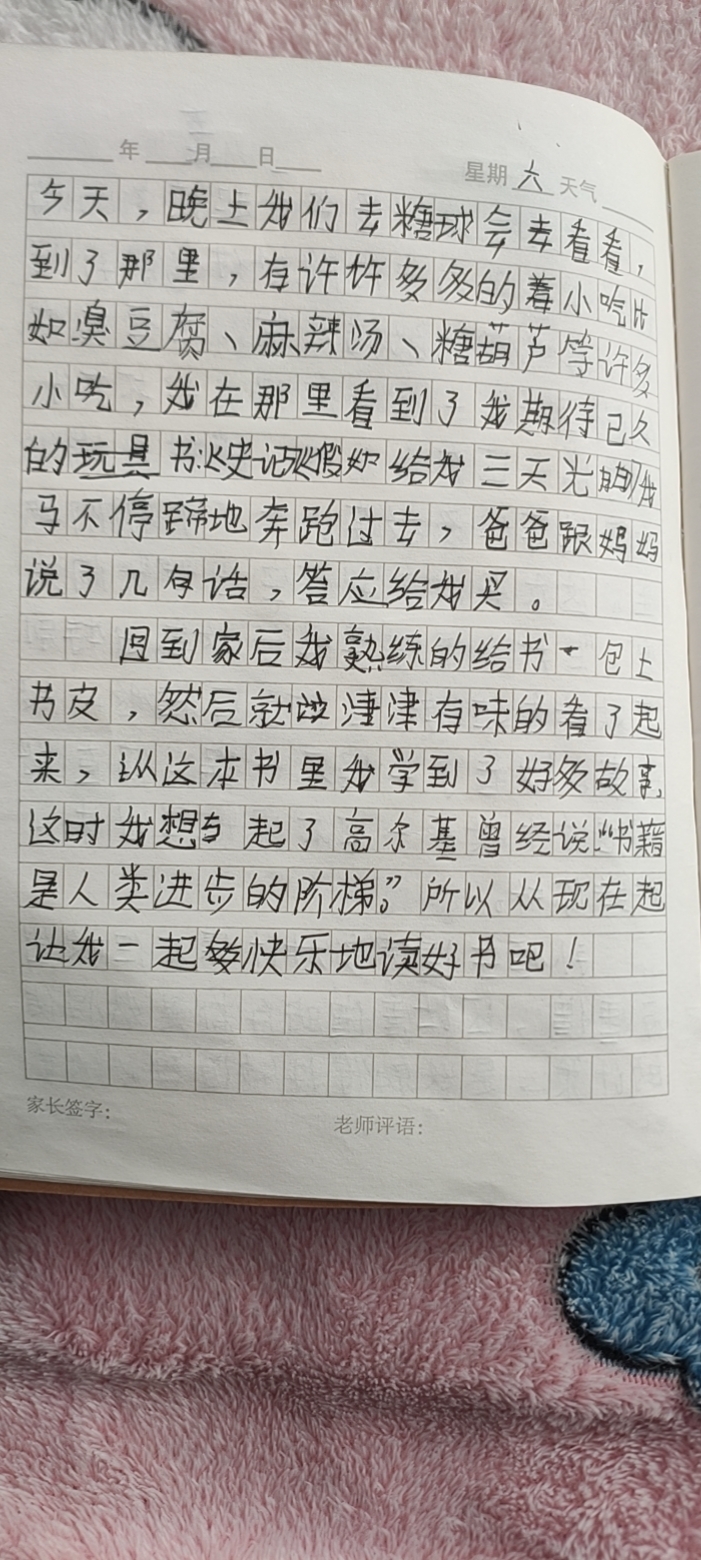 年 月 日
星期 六 天气
今天，晚上我们去糖球会去看看，
到了那里，有许许多多的着小吃比
如臭豆腐、麻辣汤、糖葫芦等许多
小吃，我在那里看到了我期待已久
的玩具书:《史记》《假如给我三天光明》我
马不停蹄地奔跑过去，爸爸跟妈妈
说了几句话，答应给我买。
回到家后我熟练的给书一包上
书皮，然后就津津有味的看了起
来，从这本书里我学到了好多故事，
这时我想起了高尔基曾经说:“书籍
是人类进步的阶梯。”所以从现在起
让我一起快乐地读好书吧！
家长签字:
老师评语: